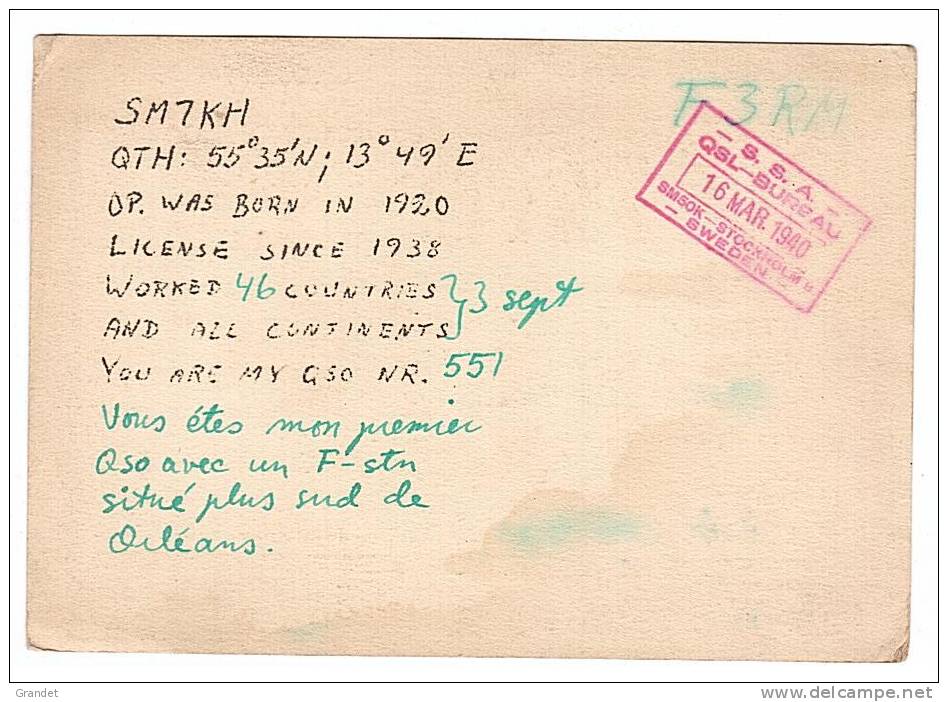 F3RM
— S. S. A. —
QSL-BUREAU
16 MAR. 1940
STOCKHOLM
— SWEDEN —
SM7KH
QTH: 55°35'N; 13°49'E
OP. WAS BORN IN 1920
LICENSE SINCE 1938
WORKED 46 COUNTRIES } 3 sept
AND ALL CONTINENTS
YOU ARE MY QSO NR. 551
Vous étes mon premier
Qso avec un F-stn
situé plus sud de
Orléans.
Grandet
delcampe.net